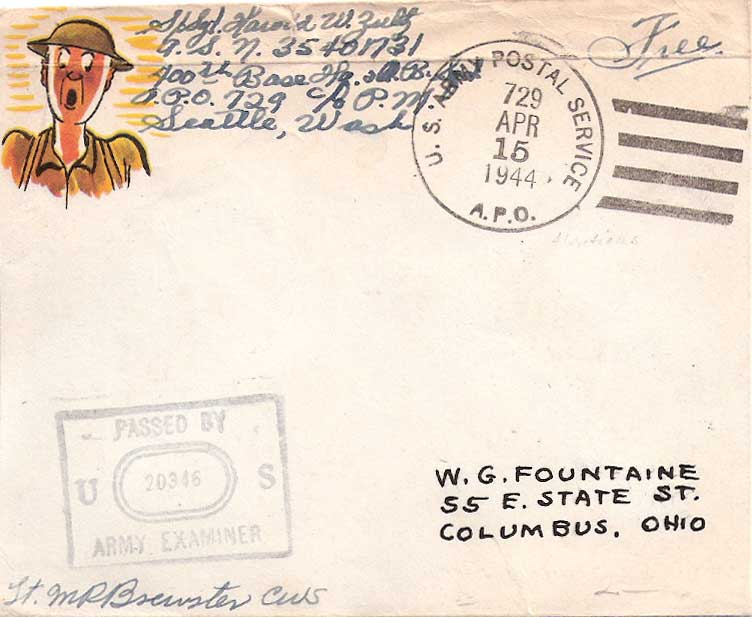 S/Sgt. Harold W. Zultz
A.S.N. 35401731
700th Base Hq. & A.B. Sq.
A.P.O. 729 c/o P.M.
Seattle, Wash
Free.
U.S. ARMY POSTAL SERVICE
729
APR
15
1944
A.P.O.
PASSED BY
U 20346 S
ARMY EXAMINER
W. G. FOUNTAINE
55 E. STATE ST.
COLUMBUS, OHIO
Lt. MR Brewster CWS